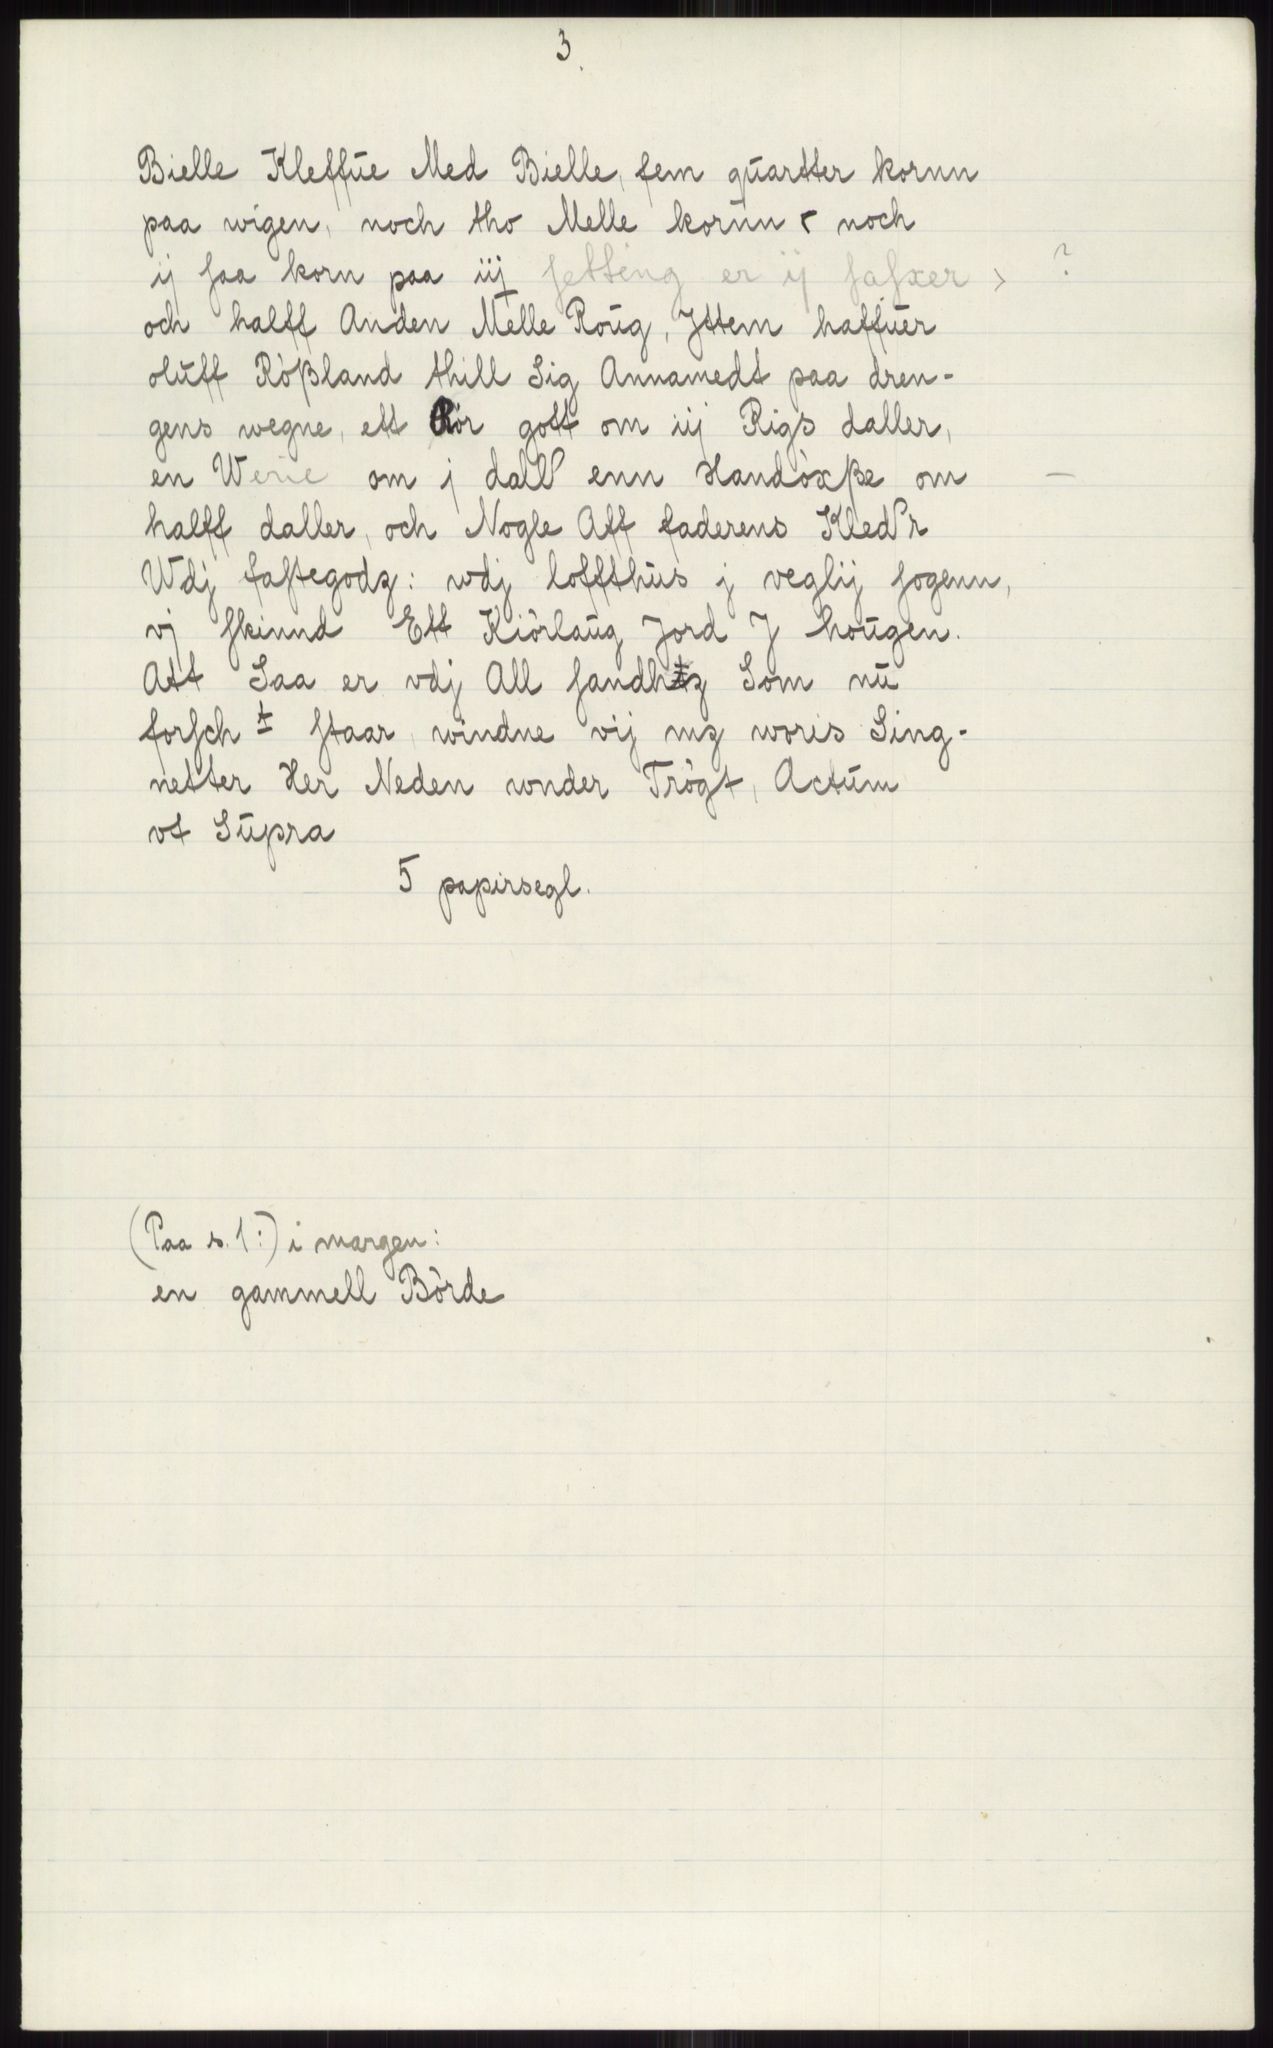 3
Bielle Kleffue Med Bielle, fem quartter kornn
paa wigen, noch tho Melle kornn < noch
ij saa korn paa iij setting er ij >  ?
och halff Anden Melle Roug, Jttem haffuer
oluff Rößland thill Sig Annamedt paa dren-
gens wegne, ett Rör gott om iij Rigs daller,
en Werie om j dall enn Handöxße om  —
halff daller, och Nogle Aff faderens Kleder
Wdj fastegodz: wdj loffthus j veglij sogenn,
vj skinnd Ett Kiörlaug Jord J hougen.
Att Saa er vdj All sandhtz Som nu
forsch t staar, windne vij mz woris Sing-
netter Her Neden wnder Trögt, Actum
vt Supra
5 papirsegl.
(Paa s. 1:) i margen:
en gammell Börde